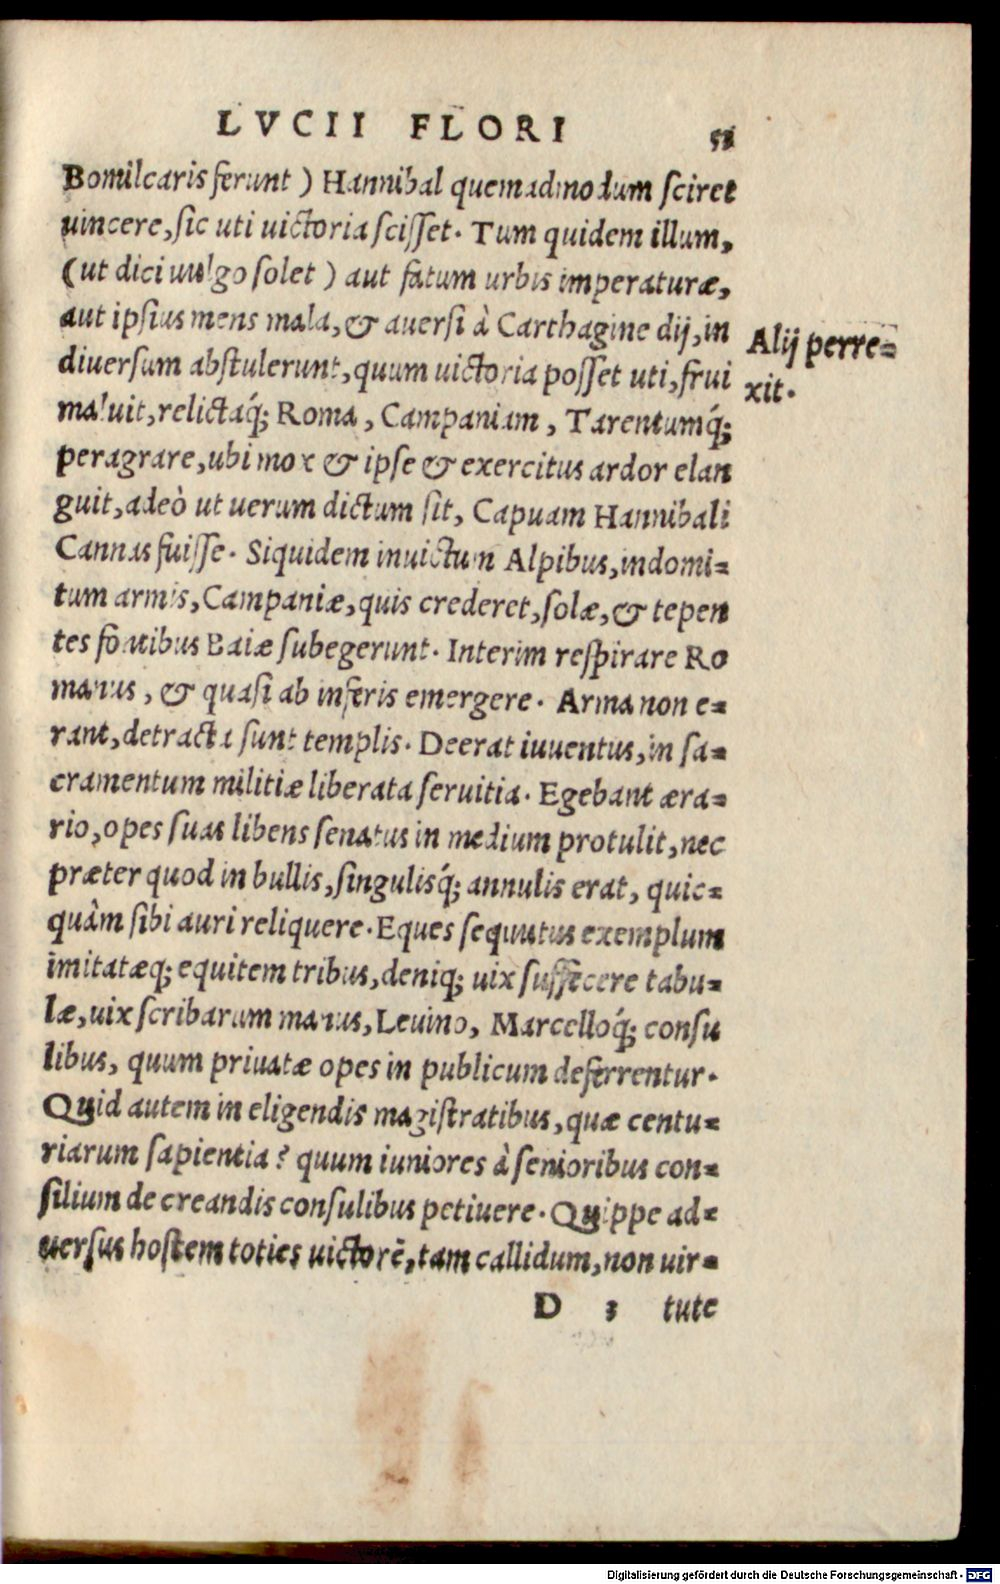 LVCII FLORI
53
Bomilcaris ferunt ) Hannibal quemadmodum sciret
uincere, sic uti uictoria scisset. Tum quidem illum,
(ut dici uulgo solet ) aut fatum urbis imperaturæ,
aut ipsius mens mala, & auersi à Carthagine dij, in
diuersum abstulerunt, quum uictoria posset uti, frui
maluit, relictaq́; Roma, Campaniam, Tarentumq́;
peragrare, ubi mox & ipse & exercitus ardor elan
guit, adeò ut uerum dictum sit, Capuam Hannibali
Cannas fuisse. Siquidem inuictum Alpibus, indomi=
tum armis, Campaniæ, quis crederet, solæ, & tepen
tes fontibus Baiæ subegerunt. Interim respirare Ro
manus, & quasi ab inferis emergere. Arma non e=
rant, detracta sunt templis. Deerat iuuentus, in sa=
cramentum militiæ liberata seruitia. Egebant æra=
rio, opes suas libens senatus in medium protulit, nec
præter quod in bullis, singulisq́; annulis erat, quic=
quàm sibi auri reliquere. Eques sequutus exemplum
imitatæq; equitem tribus, deniq; uix suffecere tabu=
læ, uix scribarum manus, Leuino, Marcelloq́; consu
libus, quum priuatæ opes in publicum deferrentur.
Quid autem in eligendis magistratibus, quæ centu=
riarum sapientia? quum iuniores à senioribus con=
silium de creandis consulibus petiuere. Quippe ad=
uersus hostem toties uictorē, tam callidum, non uir=
D 3 tute
Alij perre=
xit.
Digitalisierung gefördert durch die Deutsche Forschungsgemeinschaft - DFG